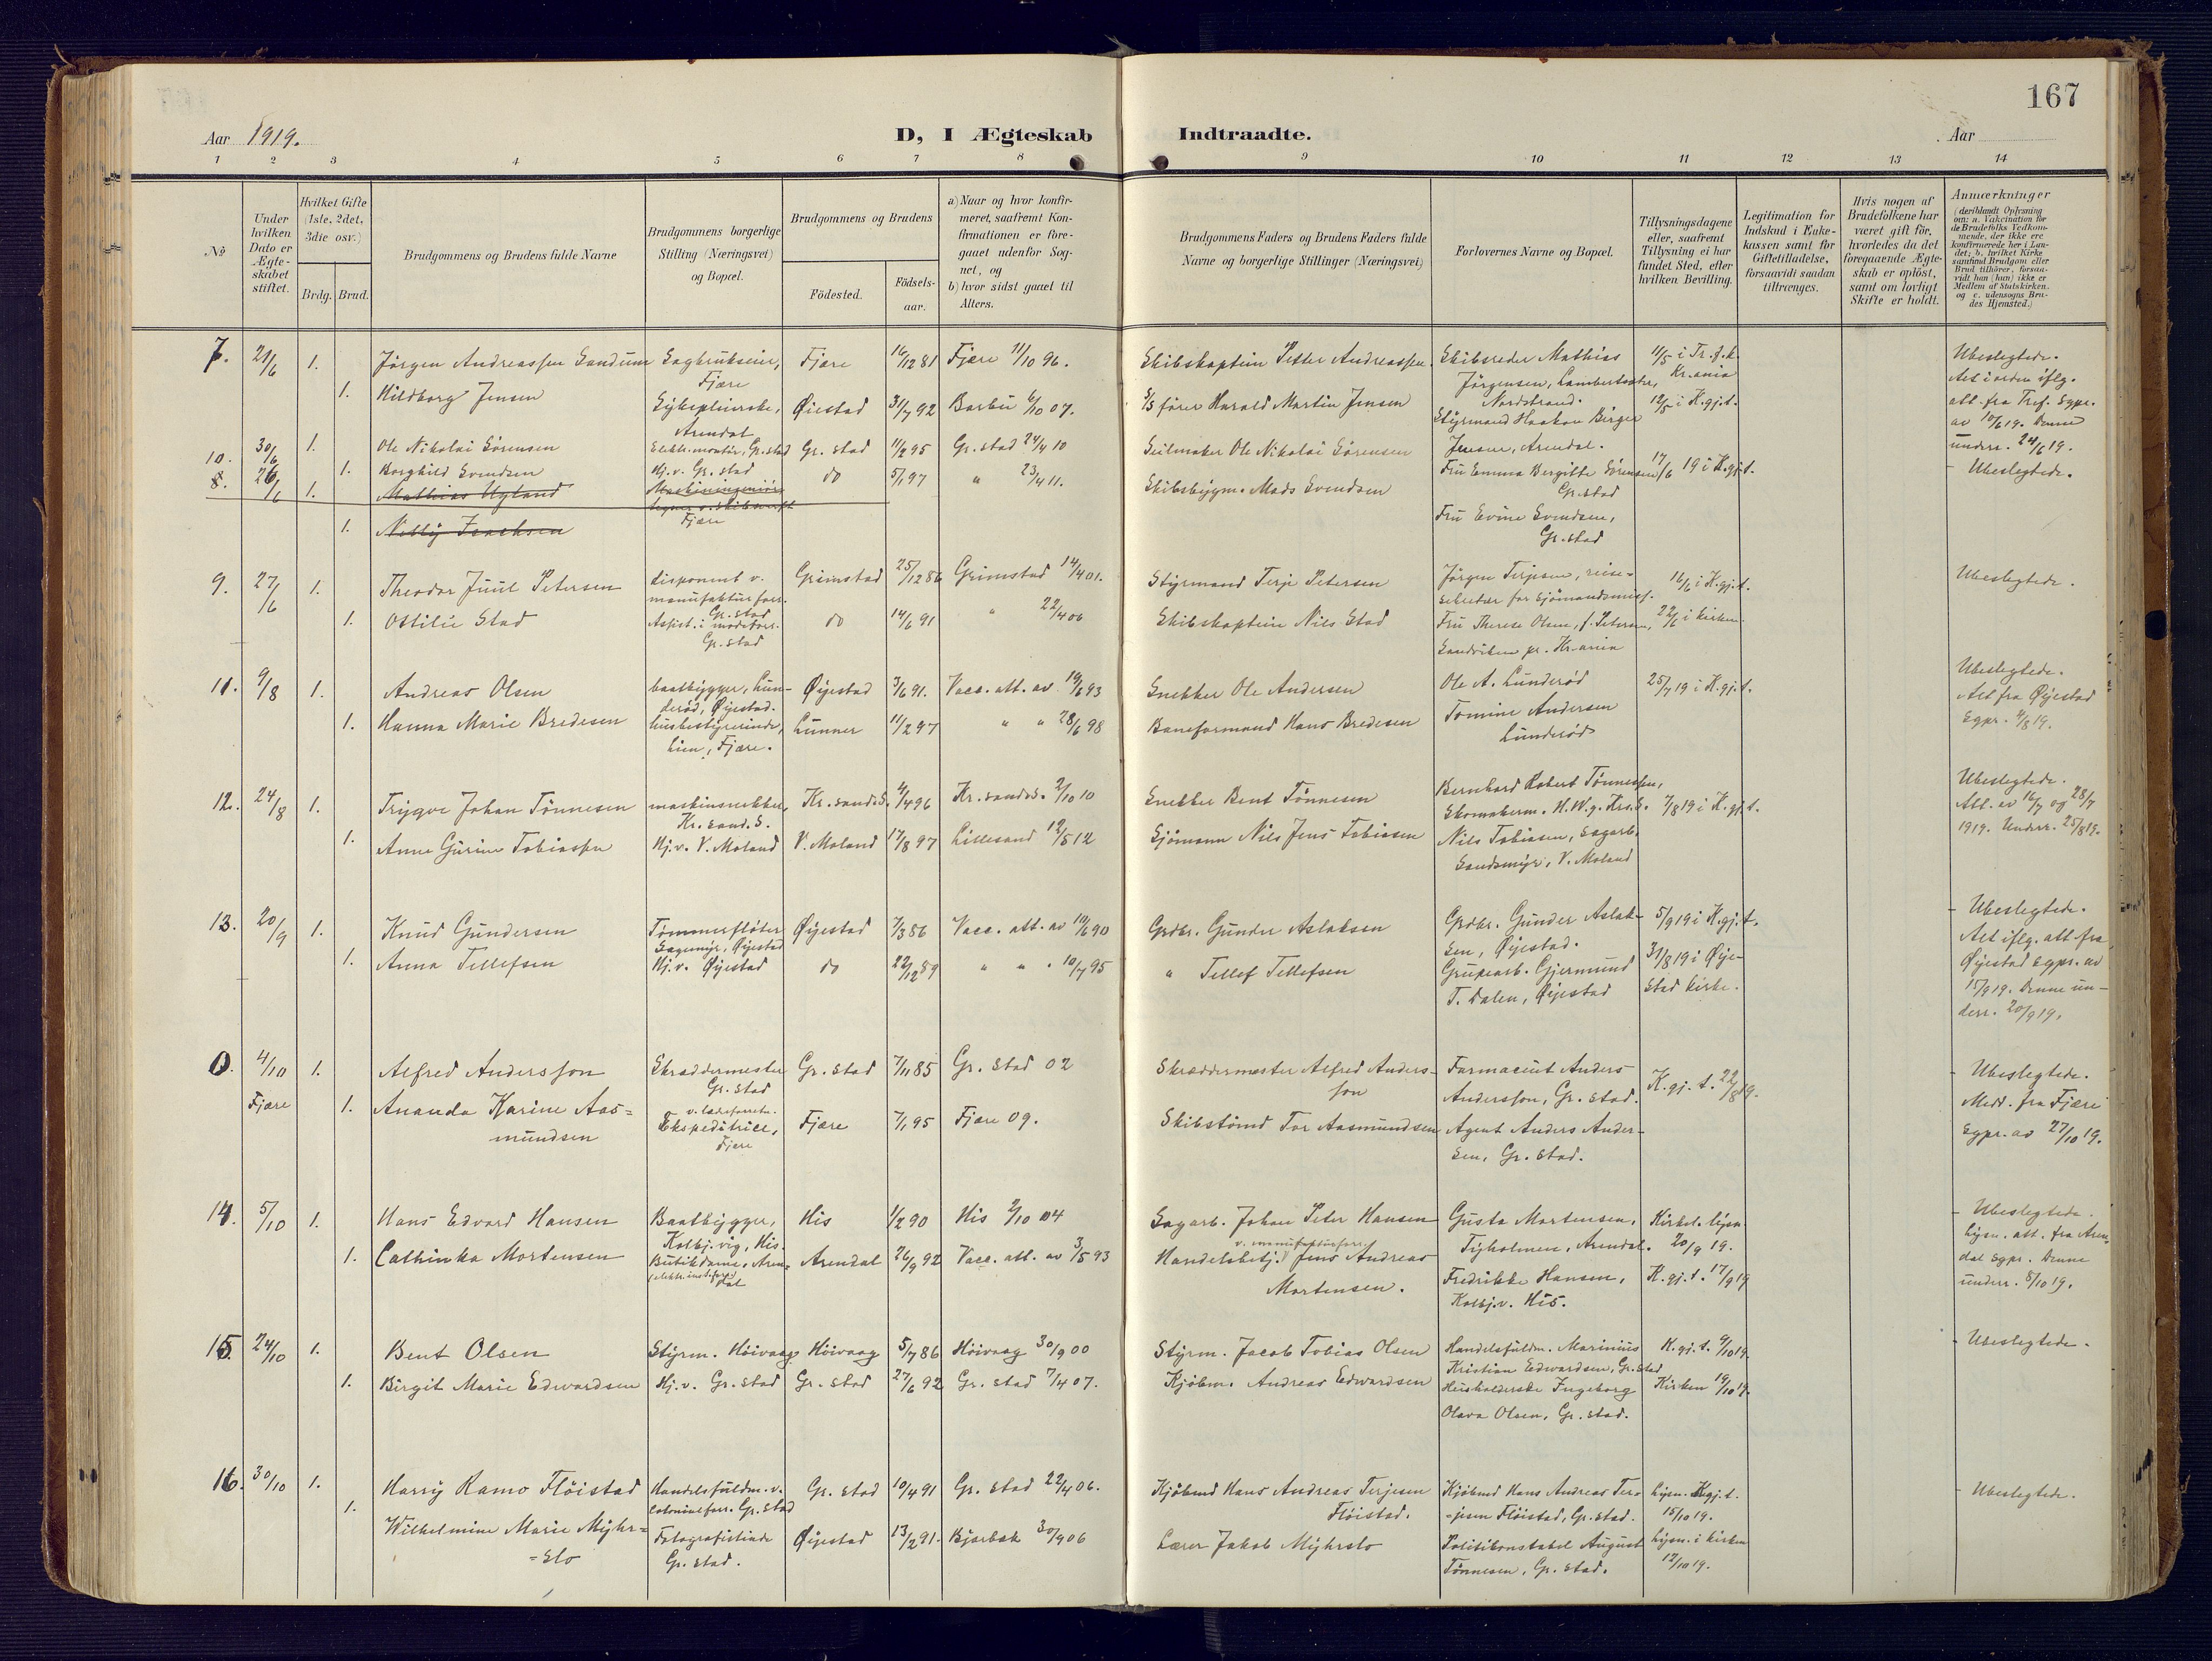 167
Aar 1919.
D, I Ægteskab Indtraadte.
Aar
1 2 3 4 5 6 7 8 9 10 11 12 13 14
No
Under hvilken Dato er Ægteskabet stiftet.
Hvilket Gifte (1ste, 2det, 3die osv.)
Brdg. Brud.
Brudgommens og Brudens fulde Navne
Brudgommens borgerlige Stilling (Næringsvei) og Bopæl.
Brudgommens og Brudens
Födested.
Födselsaar.
a) Naar og hvor konfirmeret, saafremt Konfirmationen er foregaaet udenfor Sognet, og
b) hvor sidst gaaet til Alters.
Brudgommens Faders og Brudens Faders fulde Navne og borgerlige Stillinger (Næringsvei)
Forlovernes Navne og Bopæl.
Tillysningsdagene eller, saafremt Tillysning ei har fundet Sted, efter hvilken Bevilling.
Legitimation for Indskud i Enkekassen samt for Giftetilladelse, forsaavidt saadan tiltrænges.
Hvis nogen af Brudefolkene har været gift för, hvorledes da det foregaaende Ægteskab er oplöst, samt om lovligt Skifte er holdt.
Anmærkninger
(deriblandt Oplysning om: a. Vakcination for de Brudefolks Vedkommende, der ikke ere konfirmerede her i Landet; b. hvilket Kirkesamfund Brudgom eller Brud tilhörer, forsaavidt han (hun) ikke er Medlem af Statskirken, og c. udensogns Brudes Hjemsted.)
7. 21/6 1. Jörgen Andreassen Sandum Sagbrukseier, Fjære Fjære 16/12 81 Fjære 11/10 96. Skibskaptein Petter Andreassen. Skibsreder Mathias Jörgensen, Lambertseter, Nordstrand. 11/5 i Tr.f.k. Kr.ania Ubeslegtede.
1. Hildborg Jensen Sykepleierske, Arendal Öiestad 31/7 92 Barbu 6/10 07. S/S förer Harald Martin Jensen Styrmand Haakon Birger Jensen, Arendal. 12/5 i K.gj.t. Alt i orden iflg. att. fra Tref. Sgpr. av 10/6 19. Denne underr. 24/6 19.
10. 30/6 1. Ole Nikolai Sörensen Elektr.montör, Gr.stad Gr. stad 11/2 95 Gr. stad 24/4 10 Seilmaker Ole Nikolai Sörensen Fru Emma Bergitte Sörensen Gr.stad 17/6 19 i K.gj.t. - Ubeslegtede.
1. Borghild Svendsen Hj.v. Gr. stad do 5/1 97 " 23/4 11. Skibsbygm. Mads Svendsen Fru Evine Svendsen, Gr.stad
8. 26/6 1. Mathias Ugland Maskiningeniör Fjære
1.
9. 27/6 1. Theodor Juul Petersen disponent v. manufakturforr. Gr.stad Grimstad 25/12 86 Grimstad 14/4 01. Styrmand Terje Petersen Jörgen Terjesen, reisesekretær for Sjömandsmis. 16/6 i K.gj.t. Ubeslegtede.
1. Ottilie Stad Assist. i modeforr. Gr.stad do 14/6 91 " 22/4 06 Skibskaptein Nils Stad Fru Therese Olsen, f. Petersen, Sandviken pr. Kr.ania 22/6 i kirken.
11. 9/8 1. Andreas Olsen baatbygger, Lunderöd, Øjestad. Øjestad 3/6 91. Vacc. att. av 19/6 93 Snekker Ole Andersen Ole A. Lunderöd 25/7 19 i K.gj.t. Ubeslegtede.
1. Hanna Marie Bredesen husbestyrerinde, Lien, Fjære. Lunner 11/2 97 " " 28/6 98 Baneformand Hans Bredesen Tomine Andersen Lunderöd Alt fra Øjestad Sgpr. 4/8 19.
12. 24/8 1. Trygve Johan Tönnesen maskinsnekker, Kr.sand.S. Kr.sand.S. 4/4 96 Kr.sand.S. 2/10 10 Snekker Bent Tönnesen Bernhard Robert Tönnessen, Skomakerm. H.W.g. Krs.S. 7/8 19 i K.gj.t. Ubeslegtede.
1. Anne Gurine Tobiassen Hj.v. V. Moland V. Moland 17/8 97 Lillesand 12/5 12 Sjömann Nils Jens Tobiasen Nils Tobiasen, Sagarb. Sandsmyr, V. Moland Att. av 16/7 og 28/7 1919. Underr. 25/8 19.
13. 20/9 1. Knud Gundersen Tömmerflöter Sagemyr, Øjestad Øjestad 7/3 86 Vacc. att. av 19/6 90 Grdbr. Gunder Aslaksen Grdbr. Gunder Aslaksen, Øjestad. 5/9 19 i K.gj.t. - Ubeslegtede.
1. Anna Tellefsen Hj.v. Øjestad do 22/12 89 " " " 10/7 95 " Tellef Tellefsen Grubearb. Gjermund T. Dalen, Øjestad 31/8 19 i Øjestad kirke. Alt iflg. att. fra Øjestad Sgpr. av 15/9 19. Denne underr. 20/9 19.
0. 4/10 Fjære 1. Alfred Andersson Skræddermester Gr. stad Gr. stad 7/11 85 Gr. stad 02 Skræddermester Alfred Andersson Farmaceut Anders Andersson, Gr. stad. K.gj.t. 22/8 19. - Ubeslegtede.
1. Ananda Karine Aasmundsen Ekspeditrice, Fjære Fjære 7/1 95 Fjære 09. Skibstömd Tor Aasmundsen Agent Anders Andersen, Gr. stad. Medd. fra Fjære Sgpr. av 27/10 19.
14. 5/10 1. Hans Edvard Hansen Baatbygger, Kolbj.vig, His. His 1/2 90 His 2/10 04 Sagarb. Johan Peter Hansen Gusta Mortensen, Tyholmen, Arendal. Kirkel. lysn. 20/9 19. - Ubeslegtede.
1. Cathinka Mortensen Butikdame, Arendal Arendal 26/9 92 Vacc. att. av 3/5 93 Handelsbetj. (v. manufakturforr.) Jens Andreas Mortensen. Fredrikke Hansen, Kolbj.v. His. K.gj.t. 17/9 19 Lysn. att. fra Arendal Sgpr. Denne underr. 8/10 19.
15. 24/10 1. Bent Olsen Styrm. Höivaag Höivaag 5/7 86 Höivaag 30/9 00 Styrm. Jacob Tobias Olsen Handelsfuldm. Marinius Kristian Edwardsen, Gr.stad K.gj.t. 9/10 19. - Ubeslegtede.
1. Birgit Marie Edwardsen Hj.v. Gr.stad Gr. stad 27/6 92 Gr. stad 7/4 07. Kjöbm. Andreas Edwardsen Husholderske Ingeborg Olava Olsen, Gr. stad. Kirken 19/10 19.
16. 30/10 1. Harry Ramo Flöistad Handelsfuldm. v. Colonialforr. Gr.stad Gr. stad 10/4 91 Gr. stad 22/4 06. Kjöbmd Hans Andreas Terjesen Flöistad. Kjöbmd Hans Andreas Terjesen Flöistad, Gr.stad. Lysn. K.gj.t. 15/10 19. - Ubeslegtede.
1. Wilhelmine Marie Myhrslo Fotografistinde Gr. stad. Øjestad 13/2 91. Bjorbæk 30/9 06 Lærer Jakob Myhrslo Politikonstabel August Tönnesen, Gr. stad. Lysn. i kirken 12/10 19.